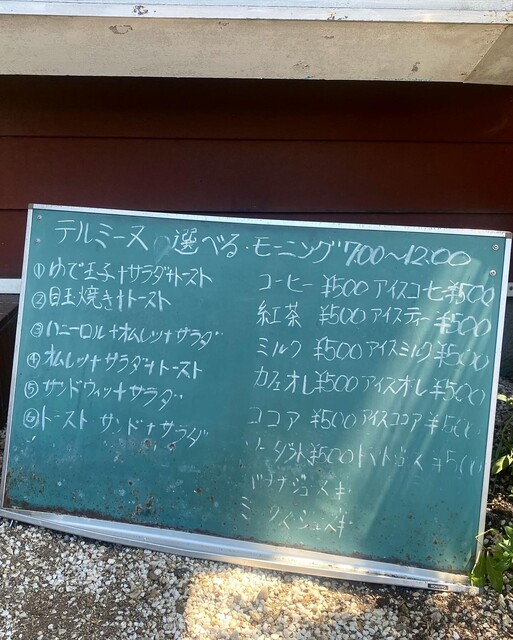 テルミーヌ 選べる・モーニング 7:00〜12:00
①ゆで玉子+サラダ+トースト
②目玉焼き+トースト
③ハニーロール+オムレツ+サラダ
④オムレツ+サラダ+トースト
⑤サンドウィッ+サラダ
⑥トースト サンド+サラダ
コーヒー ¥500 アイスコーヒ ¥500
紅茶 ¥500 アイスティー ¥500
ミルク ¥500 アイスミルク ¥500
カフェオレ ¥500 アイスオレ ¥500
ココア ¥500 アイスココア ¥500
¥500